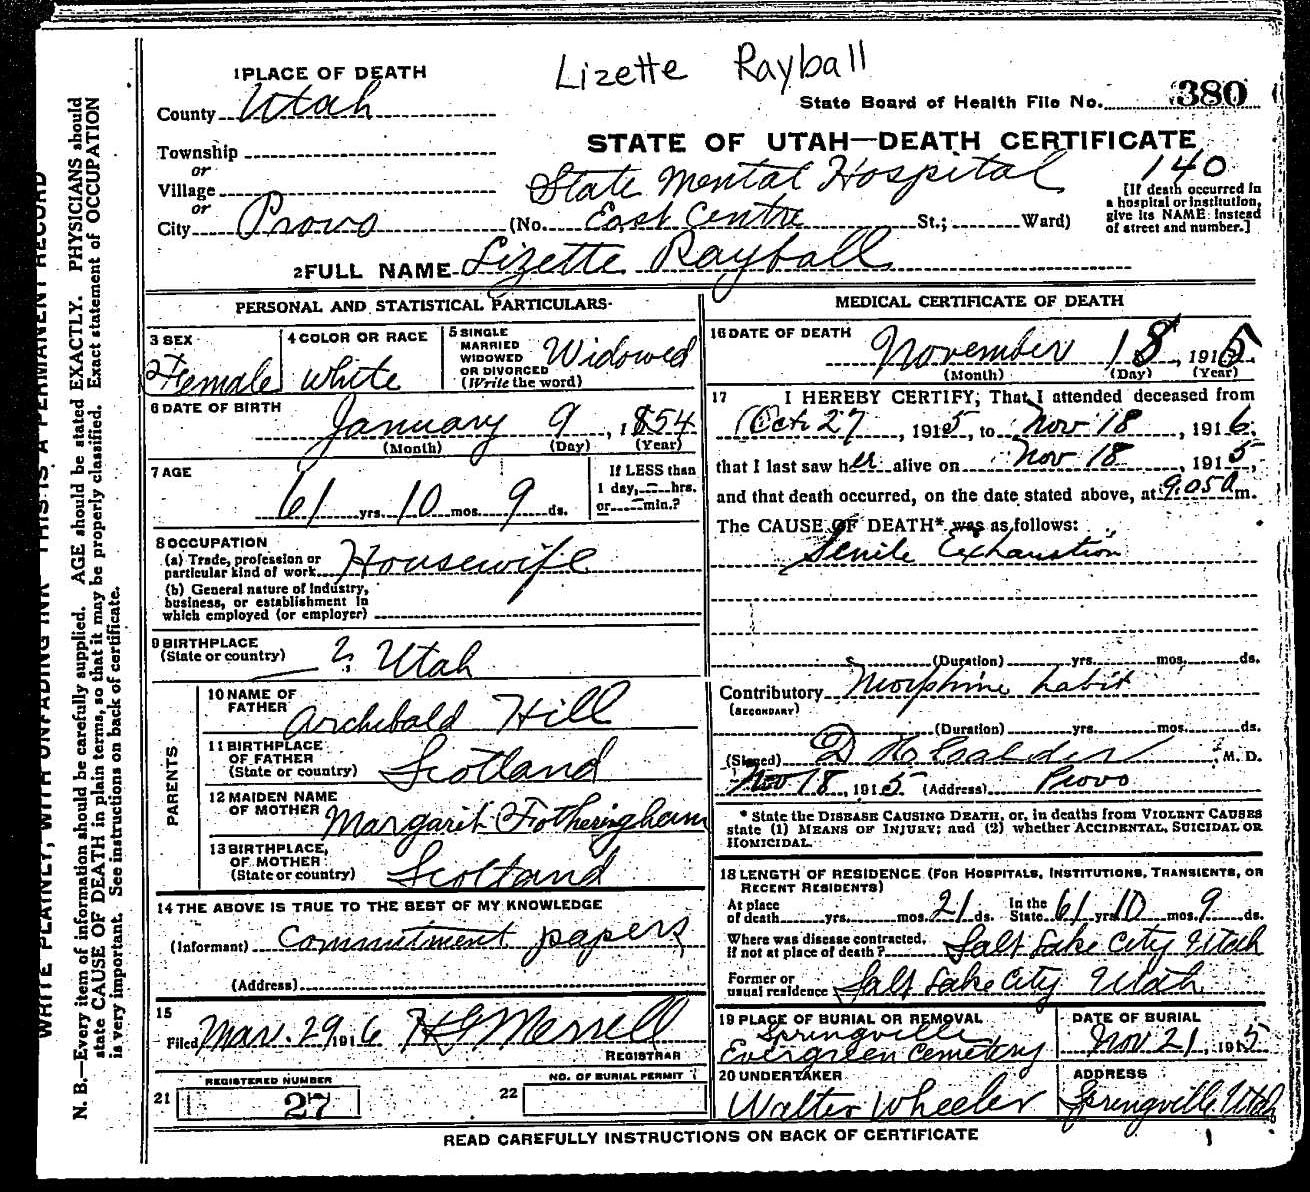 Lizette Rayball
1 PLACE OF DEATH
County Utah
State Board of Health File No. 380
STATE OF UTAH—DEATH CERTIFICATE
Township
or
Village
or
City Provo
State Mental Hospital
140
(No. East Centre St.; Ward)
[If death occurred in
a hospital or institution,
give its NAME instead
of street and number.]
2 FULL NAME Lizette Rayball
PERSONAL AND STATISTICAL PARTICULARS
3 SEX
Female
4 COLOR OR RACE
White
5 SINGLE
MARRIED
WIDOWED
OR DIVORCED
(Write the word)
Widowed
6 DATE OF BIRTH
January 9, 1854
(Month) (Day) (Year)
7 AGE
61 yrs. 10 mos. 9 ds.
If LESS than
1 day, hrs.
or min.?
8 OCCUPATION
(a) Trade, profession or
particular kind of work Housewife
(b) General nature of industry,
business, or establishment in
which employed (or employer)
9 BIRTHPLACE
(State or country) ? Utah
PARENTS
10 NAME OF
FATHER Archibald Hill
11 BIRTHPLACE
OF FATHER
(State or country) Scotland
12 MAIDEN NAME
OF MOTHER Margarit Fotheringham
13 BIRTHPLACE,
OF MOTHER
(State or country) Scotland
14 THE ABOVE IS TRUE TO THE BEST OF MY KNOWLEDGE
(Informant) Commitment papers
(Address)
15
Filed Mar. 29, 1916 H G Merrell
REGISTRAR
21 REGISTERED NUMBER
27
22 NO. OF BURIAL PERMIT
MEDICAL CERTIFICATE OF DEATH
16 DATE OF DEATH
November 18, 1915
(Month) (Day) (Year)
17 I HEREBY CERTIFY, That I attended deceased from
Oct 27, 1915, to Nov 18, 1916,
that I last saw her alive on Nov 18, 1915,
and that death occurred, on the date stated above, at 9:05 a m.
The CAUSE OF DEATH* was as follows:
Senile Exhaustion
(Duration) yrs. mos. ds.
Contributory Morphine habit
(SECONDARY)
(Duration) yrs. mos. ds.
(Signed) D H Calder, M. D.
Nov 18, 1915 (Address) Provo
* State the DISEASE CAUSING DEATH, or, in deaths from VIOLENT CAUSES
state (1) MEANS OF INJURY; and (2) whether ACCIDENTAL, SUICIDAL OR
HOMICIDAL.
18 LENGTH OF RESIDENCE (FOR HOSPITALS, INSTITUTIONS, TRANSIENTS, OR
RECENT RESIDENTS)
At place
of death yrs. mos. 21 ds. In the
State 61 yrs. 10 mos. 9 ds.
Where was disease contracted,
if not at place of death? Salt Lake City Utah
Former or
usual residence Salt Lake City Utah
19 PLACE OF BURIAL OR REMOVAL
Springville
Evergreen Cemetery
DATE OF BURIAL
Nov 21, 1915
20 UNDERTAKER
Walter Wheeler
ADDRESS
Springville, Utah
READ CAREFULLY INSTRUCTIONS ON BACK OF CERTIFICATE
WRITE PLAINLY, WITH UNFADING INK THIS IS A PERMANENT RECORD
N. B.—Every item of information should be carefully supplied. AGE should be stated EXACTLY. PHYSICIANS should
state CAUSE OF DEATH in plain terms, so that it may be properly classified. Exact statement of OCCUPATION
is very important. See instructions on back of certificate.